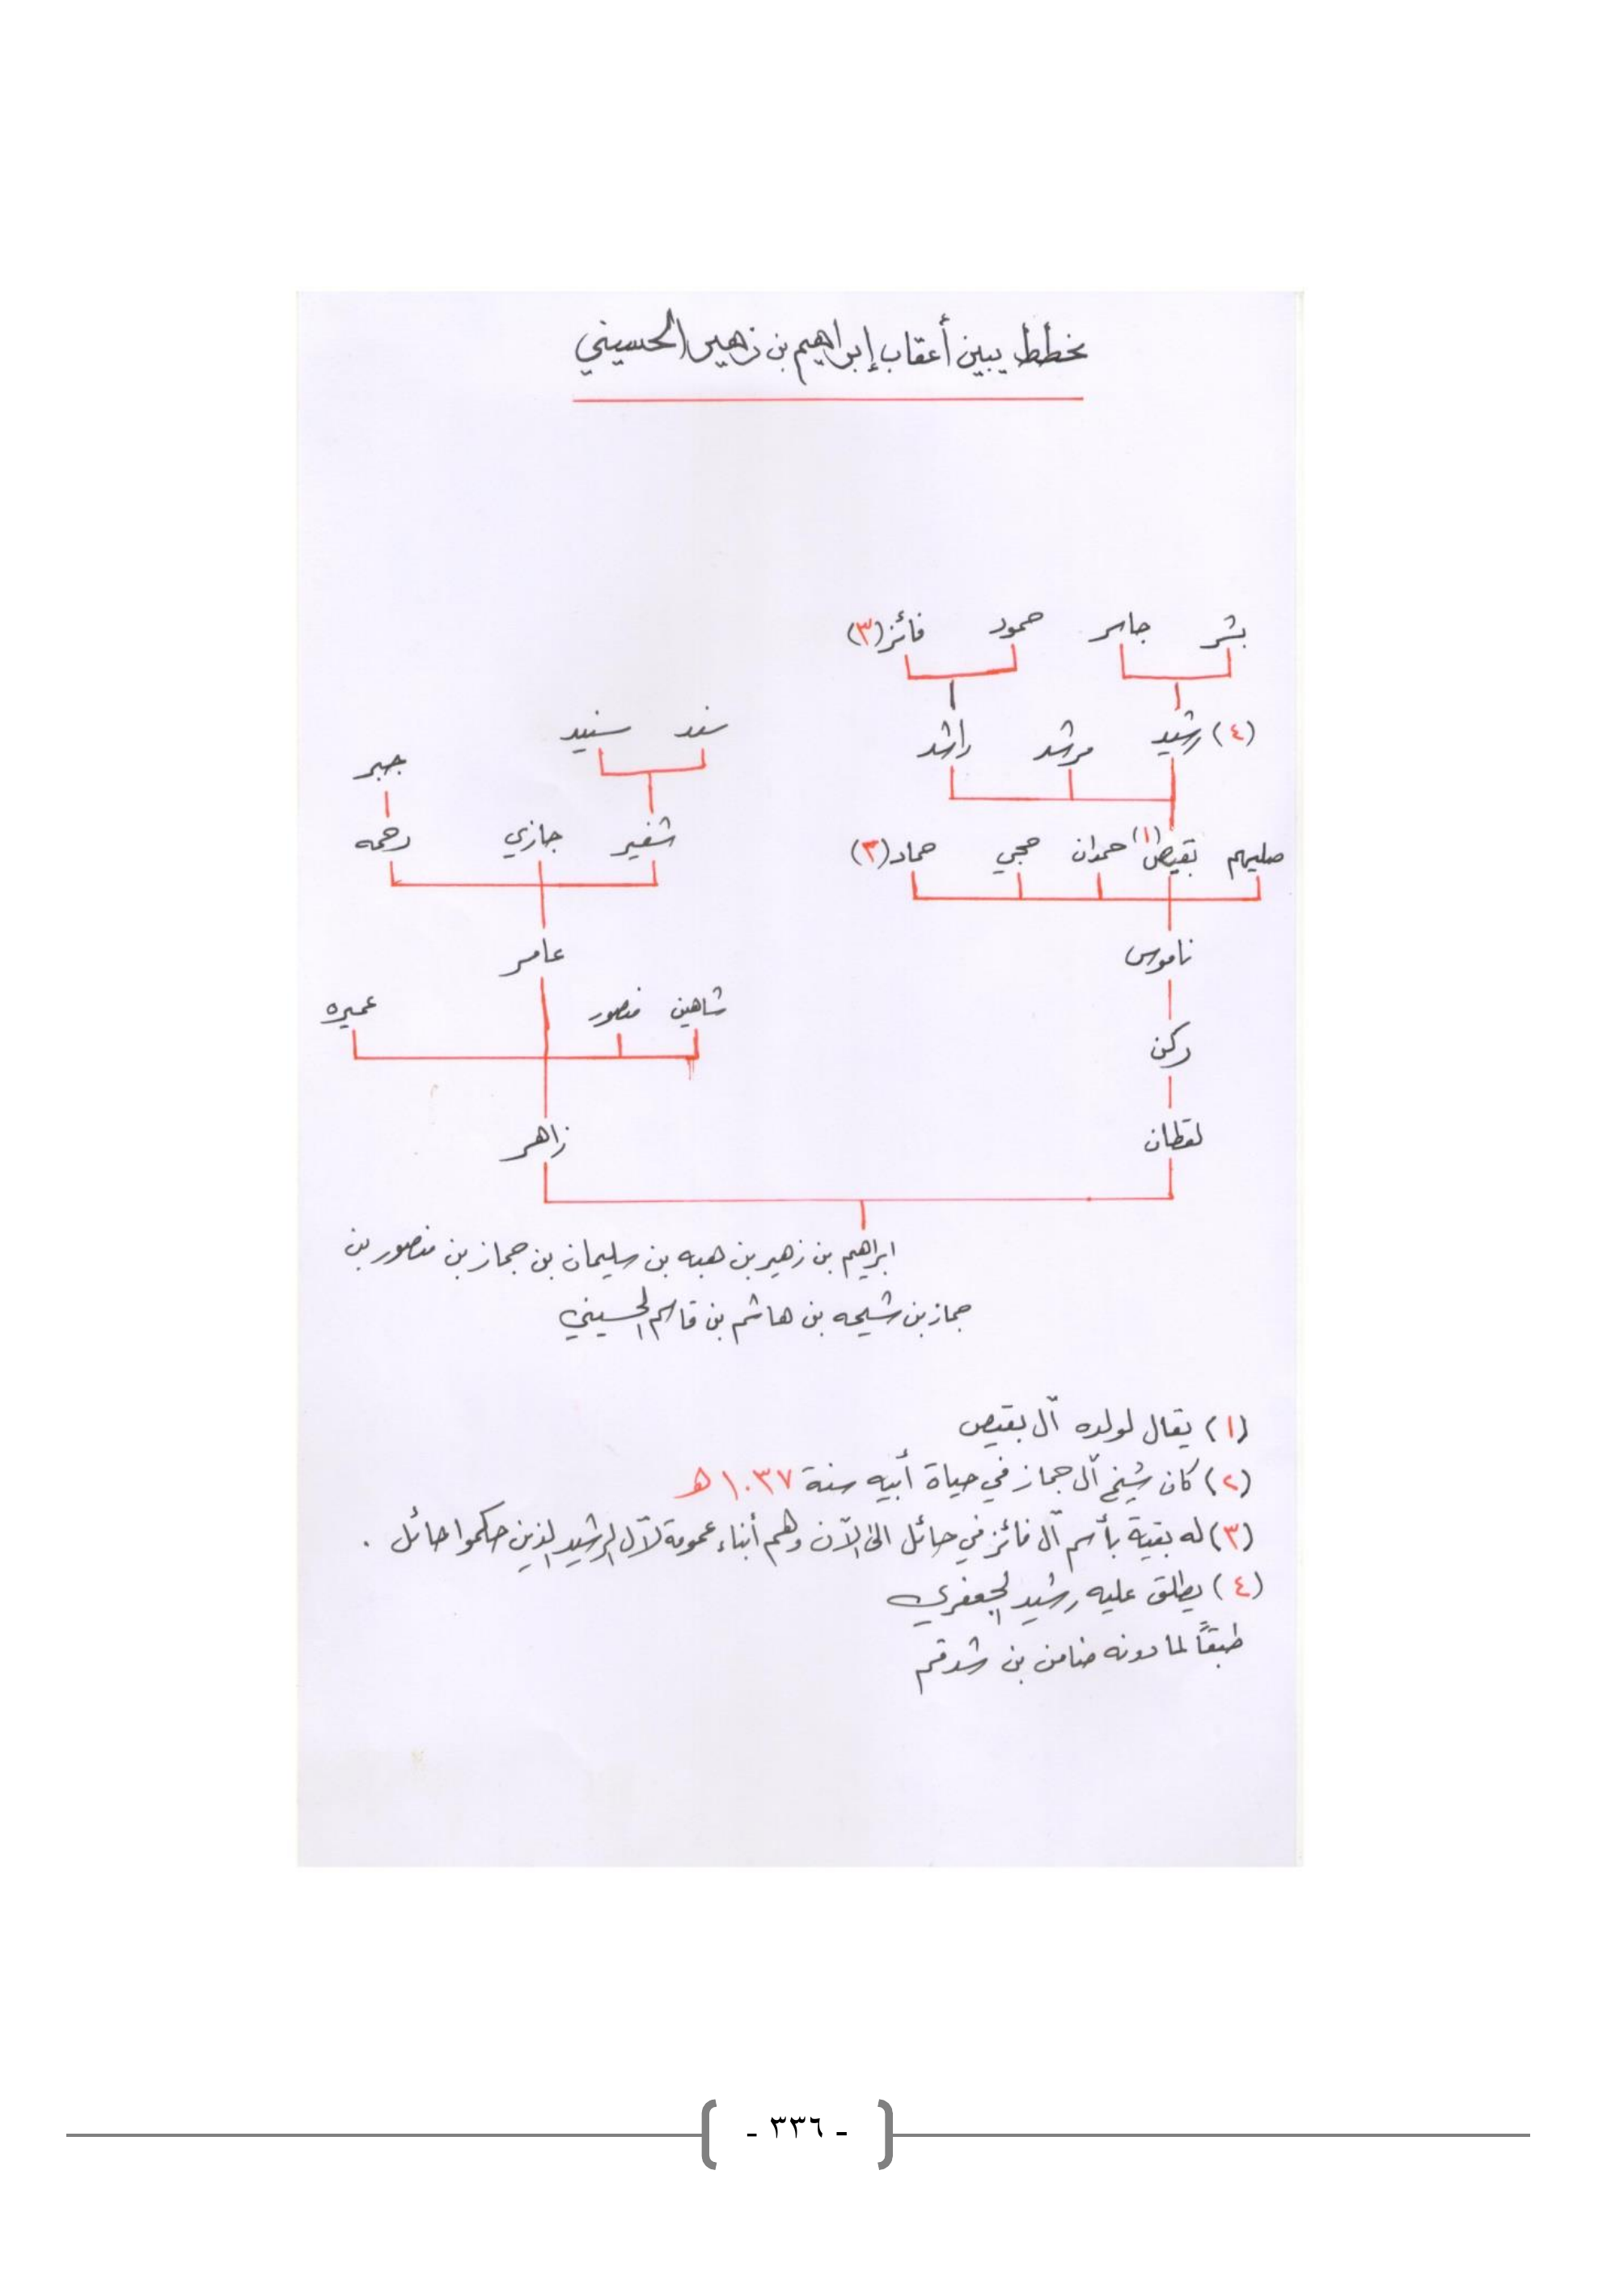 مخطط يبين أعقاب إبراهيم بن زهير الحسيني
بشر جاسر حمود فائز (٣)
(٤) رشيد مرشد راشد
سند سنيد
جبر
صليهم بقيص (١) حمدان حجي حماد (٢)
شفير جازي رحمه
ناموس
عامر
شاهين منصور عميره
ركن
لقطان
زاهر
ابراهيم بن زهير بن هبه بن سليمان بن جماز بن منصور بن
جماز بن شيحه بن هاشم بن قاسم الحسيني
(١) يقال لولده آل بقيص
(٢) كان شيخ آل جماز في حياة أبيه سنة ١٠٣٧ هـ
(٣) له بقية بأسم آل فائز في حائل الى الآن وهم أبناء عمومة لآل الرشيد الذين حكموا حائل .
(٤) يطلق عليه رشيد الجعفري
طبقاً لما دونه ضامن بن شدقم
- ٣٣٦ -